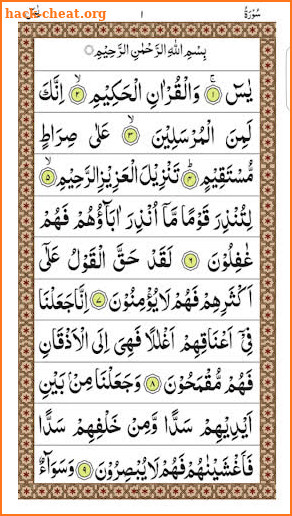 hack-cheat.org
سُوْرَةُ ١ يٰسٓ
بِسْمِ اللّٰهِ الرَّحْمٰنِ الرَّحِيْمِ
يٰسٓ ۚ ﴿١﴾ وَالْقُرْاٰنِ الْحَكِيْمِ ۙ ﴿٢﴾ اِنَّكَ
لَمِنَ الْمُرْسَلِيْنَ ۙ ﴿٣﴾ عَلٰى صِرَاطٍ
مُّسْتَقِيْمٍ ؕ ﴿٤﴾ تَنْزِيْلَ الْعَزِيْزِ الرَّحِيْمِ ۙ ﴿٥﴾
لِتُنْذِرَ قَوْمًا مَّاۤ اُنْذِرَ اٰبَآؤُهُمْ فَهُمْ
غٰفِلُوْنَ ﴿٦﴾ لَقَدْ حَقَّ الْقَوْلُ عَلٰۤى
اَكْثَرِهِمْ فَهُمْ لَا يُؤْمِنُوْنَ ﴿٧﴾ اِنَّا جَعَلْنَا
فِيْۤ اَعْنَاقِهِمْ اَغْلٰلًا فَهِيَ اِلَى الْاَذْقَانِ
فَهُمْ مُّقْمَحُوْنَ ﴿٨﴾ وَجَعَلْنَا مِنْۢ بَيْنِ
اَيْدِيْهِمْ سَدًّا وَّمِنْ خَلْفِهِمْ سَدًّا
فَاَغْشَيْنٰهُمْ فَهُمْ لَا يُبْصِرُوْنَ ﴿٩﴾ وَسَوَآءٌ
hack-cheat.org